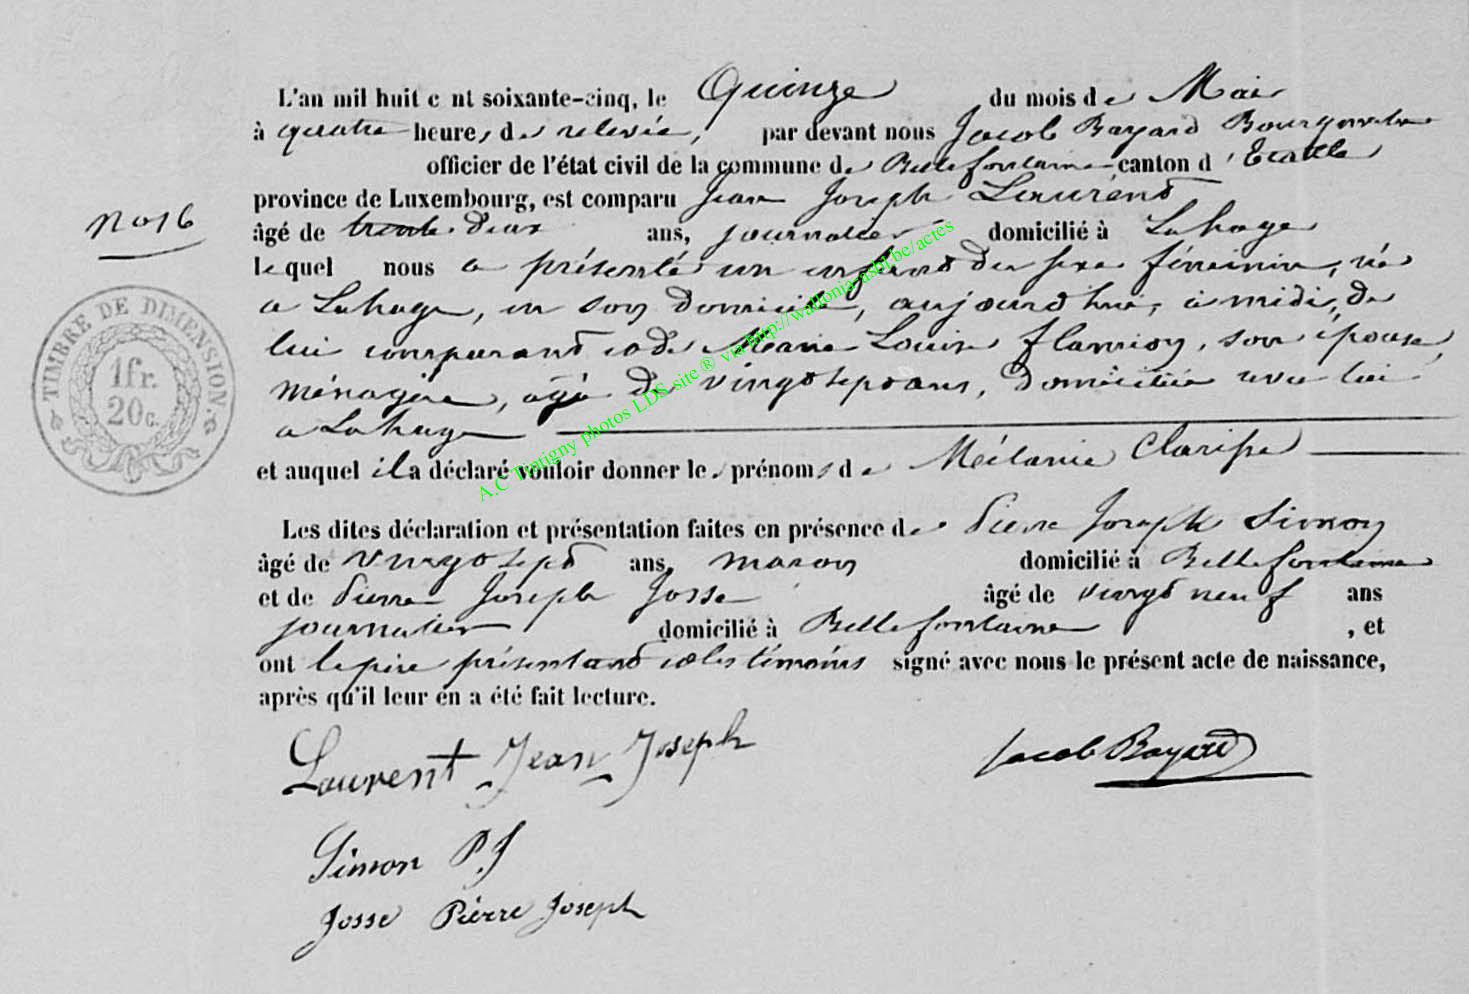 L'an mil huit c nt soixante-cinq, le Quinze du mois de Mai
à quatre heures de relevée, par devant nous Jacob Bayard Bourgmestre
officier de l'état civil de la commune de Bellefontaine canton d'Etalle
province de Luxembourg, est comparu Jean Joseph Laurent
No 16
âgé de trente deux ans, journalier domicilié à Lahage
lequel nous a présenté un enfant du sexe féminin, né
a Lahage, en son domicile, aujourd'hui, à midi, de
lui comparant et de Marie Louise Flamion, son épouse,
ménagère, agé de vingt sept ans, domiciliée avec lui
a Lahage
et auquel il a déclaré vouloir donner les prénoms de Mélanie Clarisse
Les dites déclaration et présentation faites en présence de Pierre Joseph Simon
âgé de vingt sept ans, maçon domicilié à Bellefontaine
et de Pierre Joseph Josse âgé de vingt neuf ans
journalier domicilié à Bellefontaine , et
ont le père présentant et les témoins signé avec nous le présent acte de naissance,
après qu'il leur en a été fait lecture.
Laurent Jean Joseph
Jacob Bayard
Simon P.J
Josse Pierre Joseph
TIMBRE DE DIMENSION.
1fr.
20c.
A.C Tintigny photos LDS site ® via http://wallonia-asbl.be/actes